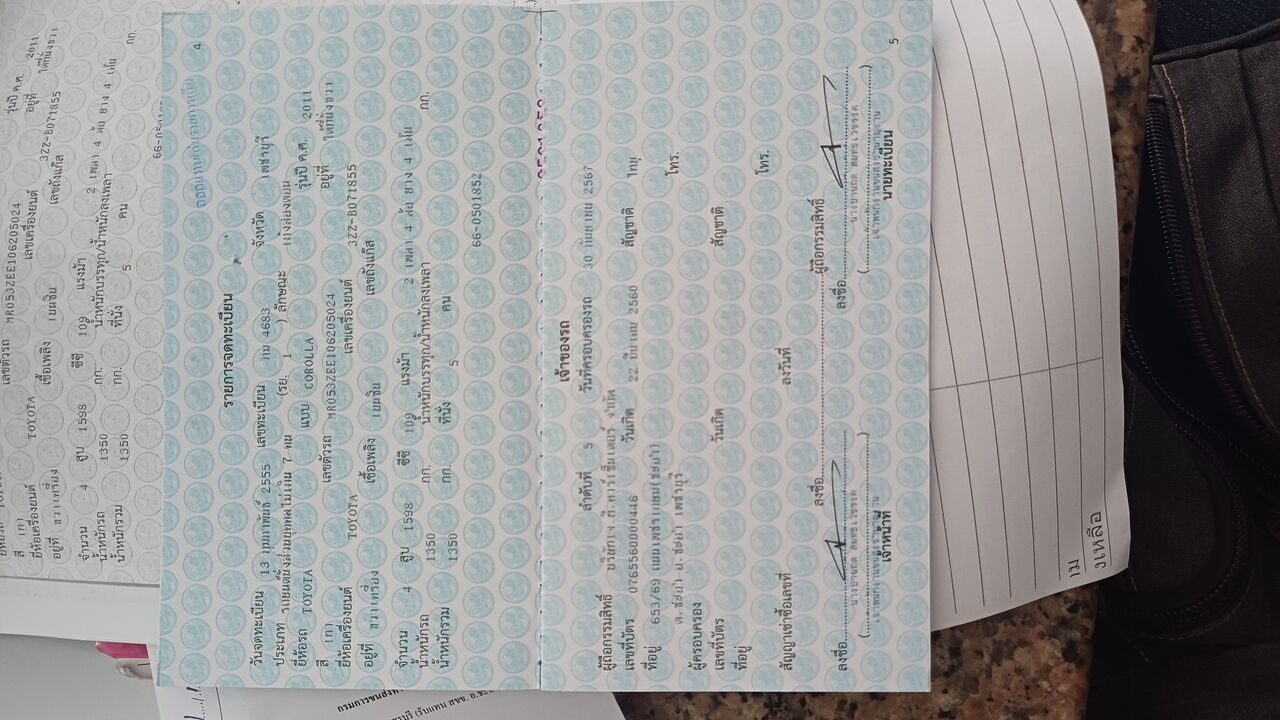 4
รายการจดทะเบียน
วันจดทะเบียน 13 กุมภาพันธ์ 2555 เลขทะเบียน กม 4683 จังหวัด เพชรบุรี
ประเภท รถยนต์นั่งส่วนบุคคลไม่เกิน 7 คน (รย. 1 ) ลักษณะ เก๋งสองตอน
ยี่ห้อรถ TOYOTA แบบ COROLLA รุ่นปี ค.ศ. 2011
สี เทา เลขตัวรถ MR053ZEE106205024 อยู่ที่ ใต้ที่นั่งขวา
ยี่ห้อเครื่องยนต์ TOYOTA เลขเครื่องยนต์ 3ZZ-B071855
อยู่ที่ ขวาเครื่อง เชื้อเพลิง เบนซิน เลขถังแก๊ส
จำนวน 4 สูบ 1598 ซีซี 109 แรงม้า 2 เพลา 4 ล้อ ยาง 4 เส้น
น้ำหนักรถ 1350 กก. น้ำหนักบรรทุก/น้ำหนักลงเพลา กก.
น้ำหนักรวม 1350 กก. ที่นั่ง 5 คน
66-0501852
เจ้าของรถ
ลำดับที่ 5 วันที่ครอบครองรถ 30 กันยายน 2567
ผู้ถือกรรมสิทธิ์ บริษัท จำกัด
เลขที่บัตร 0765560000446 วันเกิด 22 มีนาคม 2560 สัญชาติ ไทย
ที่อยู่ 653/69 ถนนเพชรเกษม(ชะอำ) โทร.
ต.ชะอำ อ.ชะอำ เพชรบุรี
ผู้ครอบครอง
เลขที่บัตร วันเกิด สัญชาติ
ที่อยู่ โทร.
สัญญาเช่าซื้อเลขที่ ลงวันที่
ลงชื่อ ผู้ถือกรรมสิทธิ์
ลงชื่อ ลงชื่อ
เจ้าหน้าที่ นายทะเบียน
5
รุ่นปี ค.ศ. 2011
เลขตัวรถ MR053ZEE106205024 อยู่ที่ ใต้ที่นั่งขวา
ยี่ห้อเครื่องยนต์ TOYOTA เลขเครื่องยนต์ 3ZZ-B071855
อยู่ที่ ขวาเครื่อง เชื้อเพลิง เบนซิน เลขถังแก๊ส
จำนวน 4 สูบ 1598 ซีซี 109 แรงม้า 2 เพลา 4 ล้อ ยาง 4 เส้น
น้ำหนักรถ 1350 กก. น้ำหนักบรรทุก/น้ำหนักลงเพลา กก.
น้ำหนักรวม 1350 กก. ที่นั่ง 5 คน